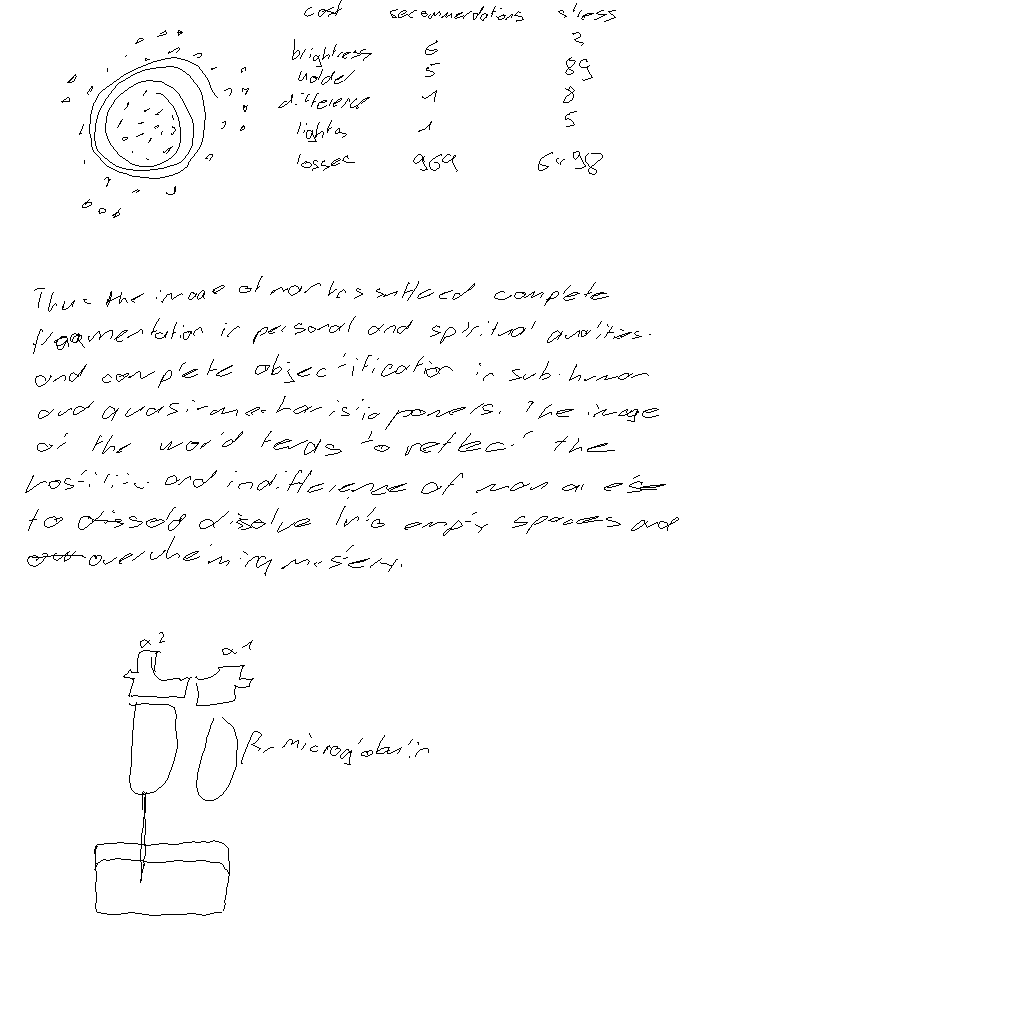 cost recommendations stress
brightness 6 2
model 5 89
difference 1 8
lights 1 5
losses 969 6498
Thus the image of man has suffered complete
fragmentation in personal and spiritual qualities
and complete objectification in sub-human
and quasi-mechanistic powers. The image
of the world tends to reflect the
hostility and indifference of man or else
to dissolve into empty spaces and
overwhelming mystery.
α2 α1
β2-microglobulin